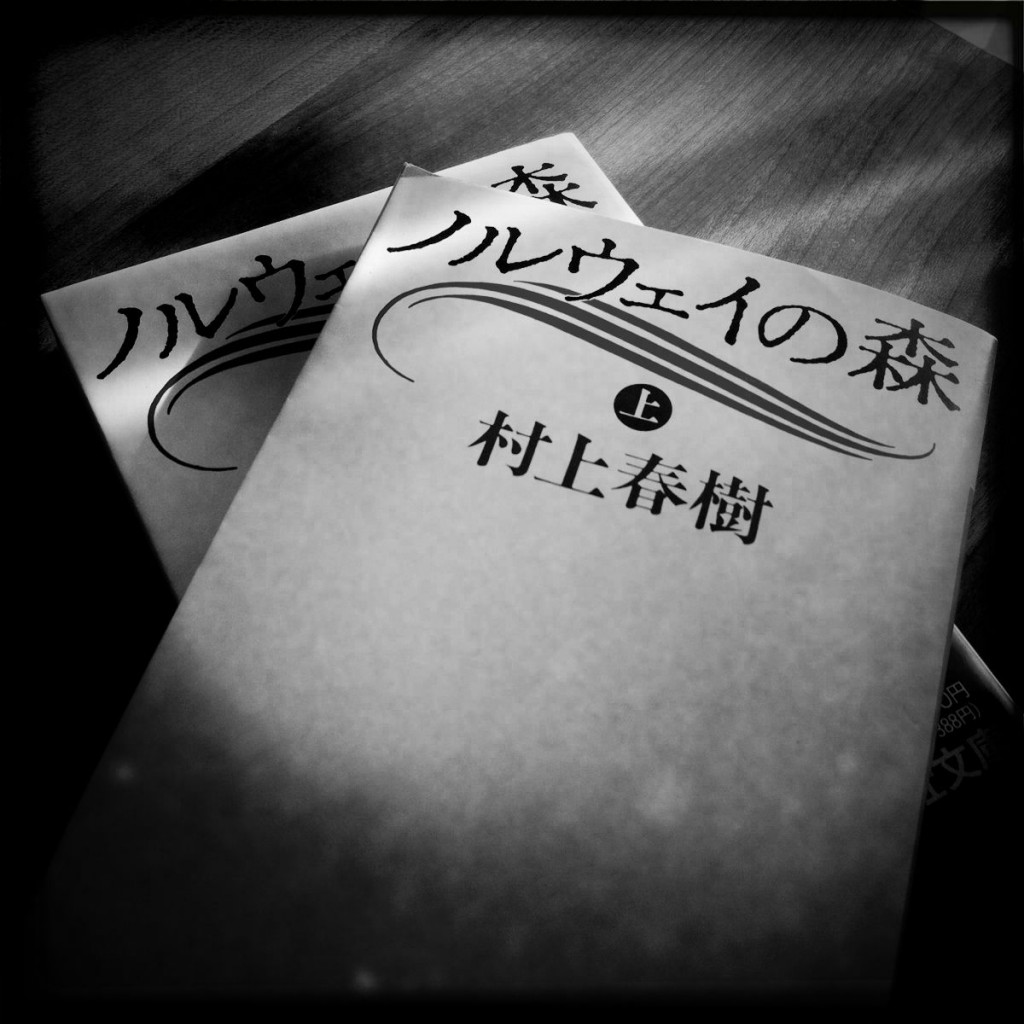 ノルウェイの森
上
村上春樹
ノルウェ
森
0円
388円)
社文庫